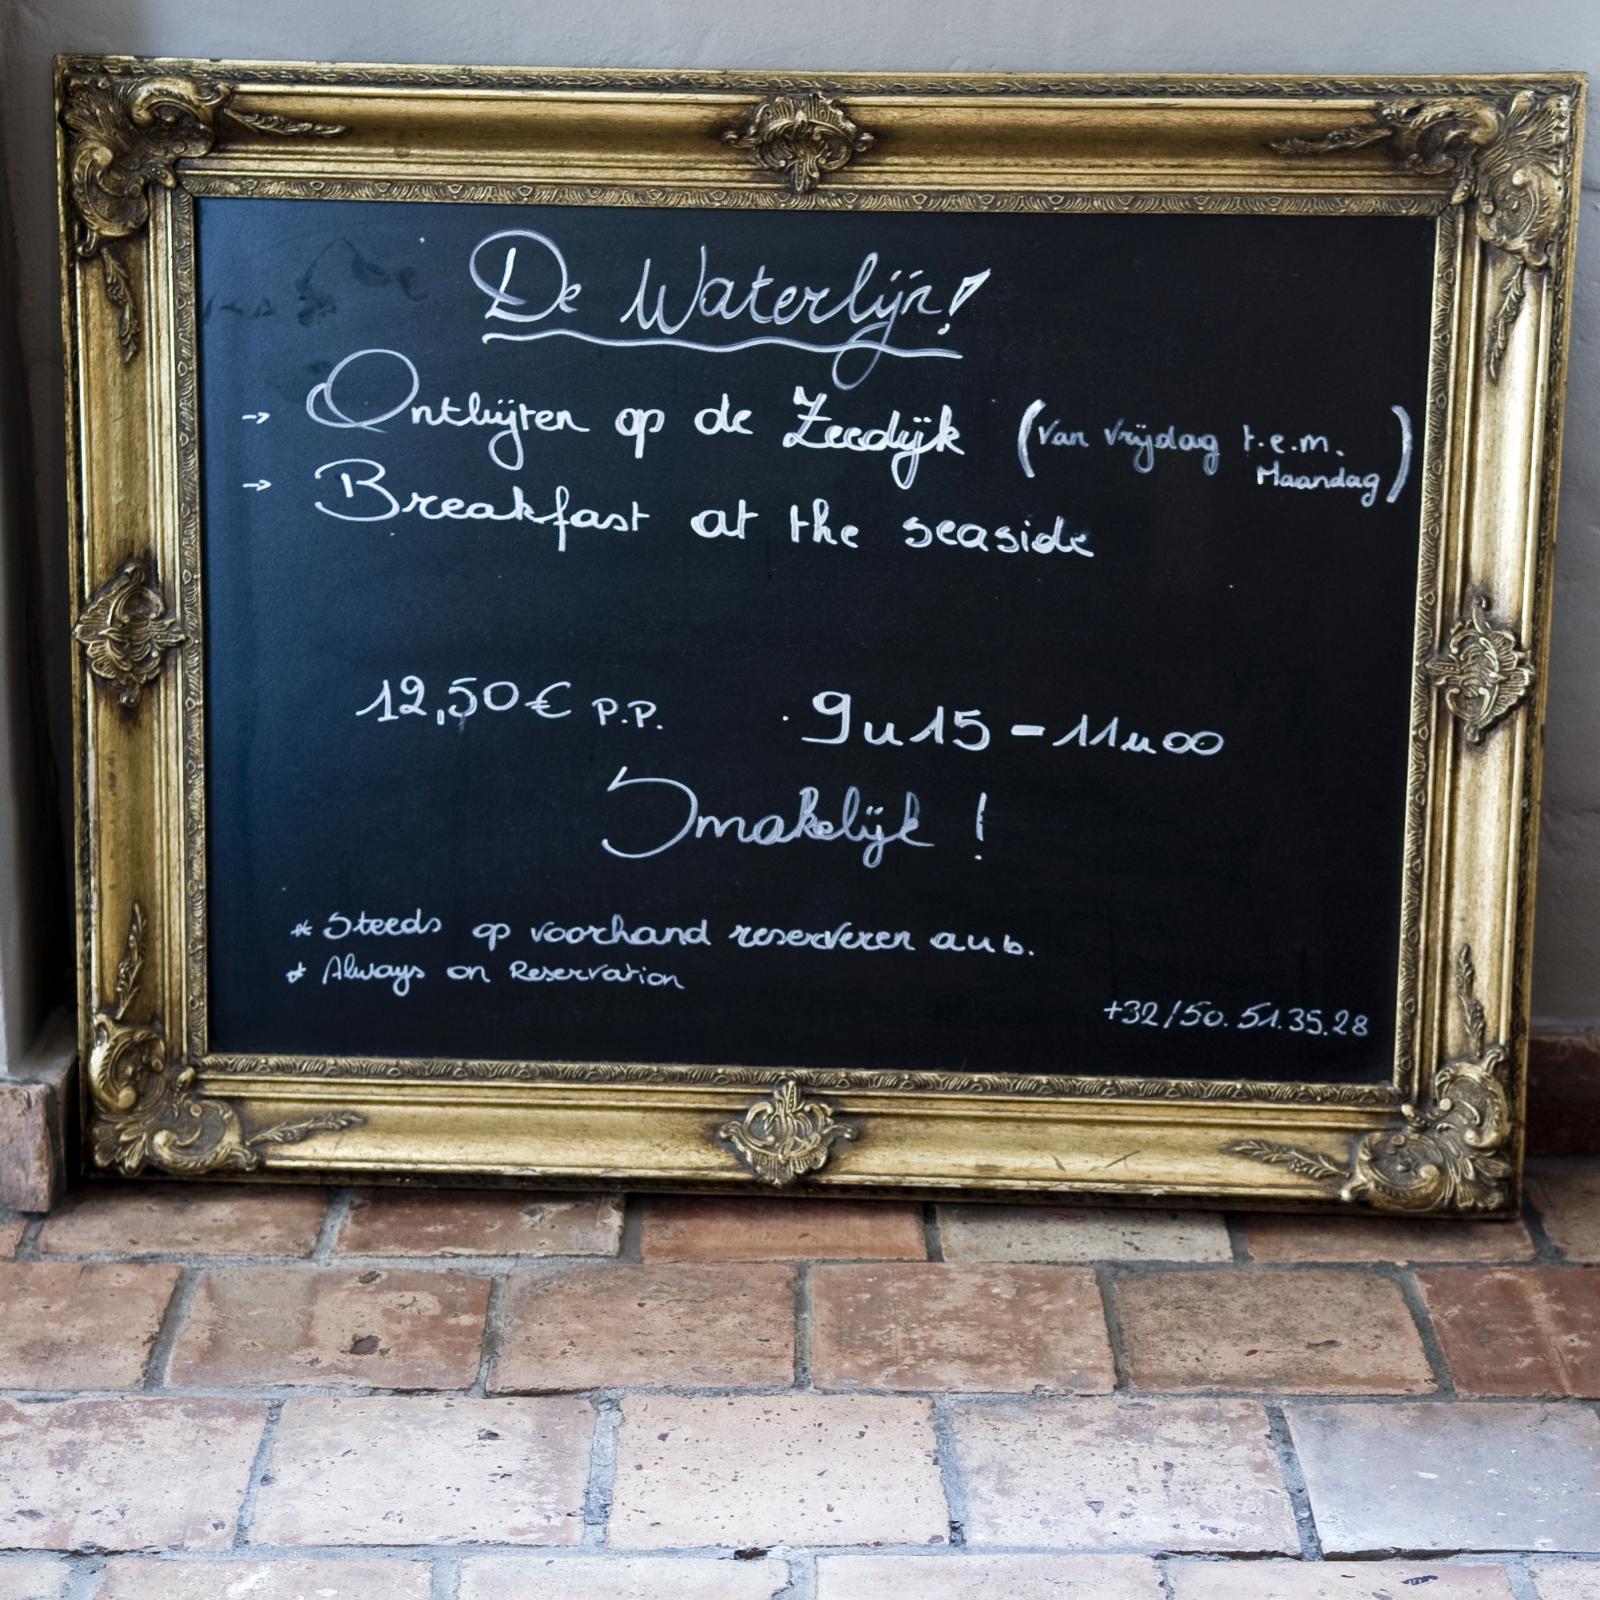 De Waterlijn!
→ Ontbijten op de Zeedijk (van vrijdag t.e.m. Maandag)
→ Breakfast at the seaside
12,50€ P.P. 9u15 - 11u00
Smakelijk !
* Steeds op voorhand reserveren aub.
* Always on Reservation
+32/50.51.35.28